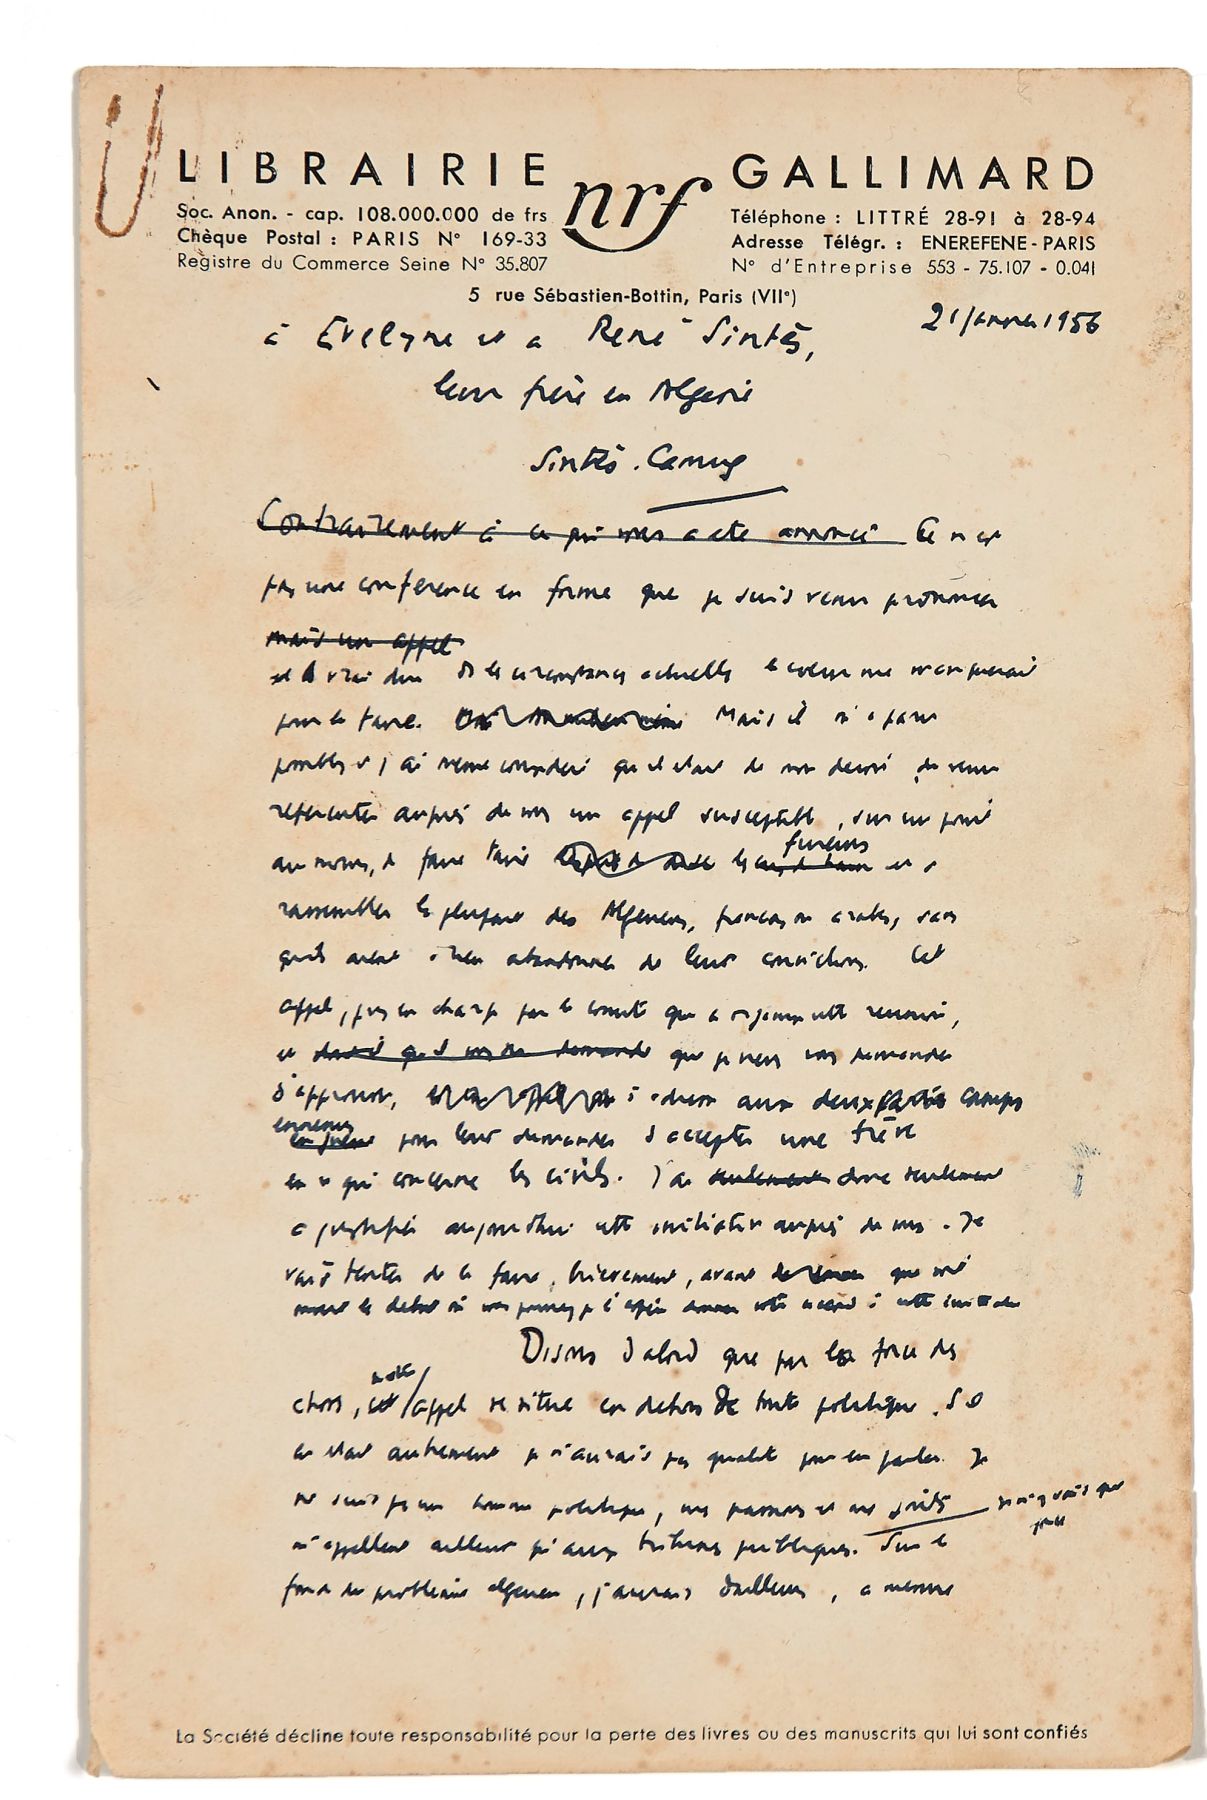 LIBRAIRIE nrf GALLIMARD
Soc. Anon. - cap. 108.000.000 de frs
Chèque Postal : PARIS N° 169-33
Registre du Commerce Seine N° 35.807
Téléphone : LITTRÉ 28-91 à 28-94
Adresse Télégr. : ENEREFENE - PARIS
N° d'Entreprise 553 - 75.107 - 0.041
5 rue Sébastien-Bottin, Paris (VIIe)
21 janvier 1956
à Evelyne et a René Sintès,
leur frère en Algérie
Sintès-Camus
Contrairement à ce qui vous a été annoncé Ce n'est
pas une conférence en forme que je suis venu prononcer
mais un appel
et à vrai dire ds les circonstances actuelles le coeur me manquerait
pour le faire. Mais il m'a paru
possible et j'ai même considéré qu'il était de mon devoir, de venir
répercuter auprès de vous un appel susceptible, sur un point
furieux
au moins, de faire taire les et de
rassembler la plupart des Algériens, français ou arabes, sans
qu'ils aient à rien abandonner de leurs convictions. Cet
appel, pris en charge par le comité qui a organisé cette réunion,
et que je viens vous demander
d'approuver, s'adresse aux deux partis camps
ennemis
en guerre pour leur demander d'accepter une trêve
en ce qui concerne les civils. J'ai seulement donc seulement
à justifier aujourd'hui cette initiative auprès de vous. Je
vais tenter de le faire, brièvement, avant que soit
le débat où vous pourrez je l'espère donner votre accord à cette initiative
Disons d'abord que par la force des
notre
choses, cet appel se situe en dehors de toute politique. S'il
en était autrement je n'aurais pas qualité pour en parler. Je
ne suis pas un homme politique, mes passions et mes goûts
m'appellent ailleurs qu'aux tribunes publiques. Sur le
fond du problème algérien, j'aurais d'ailleurs, à mesure
La Société décline toute responsabilité pour la perte des livres ou des manuscrits qui lui sont confiés